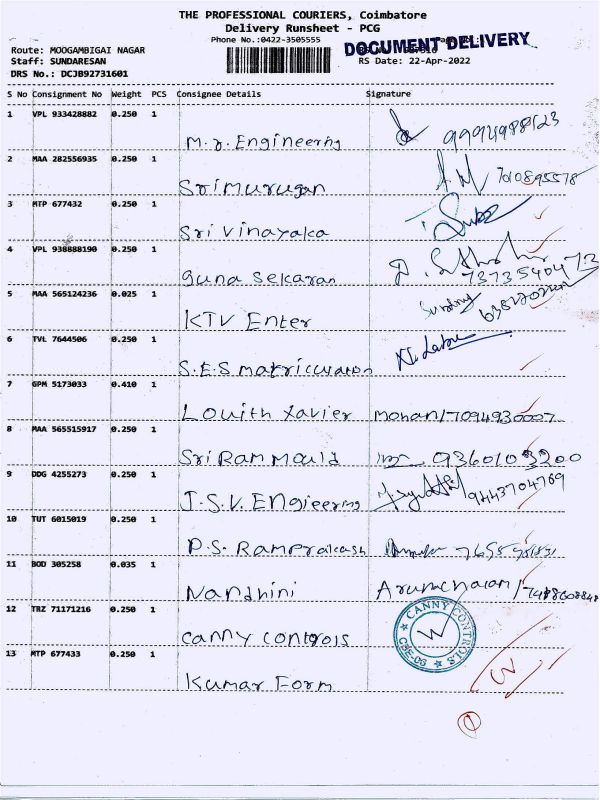 THE PROFESSIONAL COURIERS, Coimbatore
Delivery Runsheet - PCG
Phone No.:0422-3505555
DOCUMENT DELIVERY
Route: MOOGAMBIGAI NAGAR
Staff: SUNDARESAN
RS Date: 22-Apr-2022
DRS No.: DCJB92731601
S No Consignment No Weight PCS Consignee Details Signature
1 VPL 933428882 0.250 1
M.J. Engineering
2 MAA 282556935 0.250 1
Sri Murugan 7010895578
3 MTP 677432 0.250 1
Sri Vinayaka
4 VPL 938888190 0.250 1
guna Sekaran 7373540473
5 MAA 565124236 0.025 1
KTV Enter
6 TVL 7644506 0.250 1
S.E.S matriculation
7 GPM 5173033 0.410 1
Louith Xavier Mohan/7094930007
8 MAA 565515917 0.250 1
Sri Ram Mould 9360103200
9 DDG 4255273 0.250 1
J.S.V. Engieering 9443704769
10 TUT 6015019 0.250 1
P.S. Ramprakash
11 BOD 305258 0.035 1
Nandhini Arunachalam
12 TRZ 71171216 0.250 1
Canny Controls
CANNY CONTROLS
CBE-06
13 MTP 677433 0.250 1
Kumar Form
1